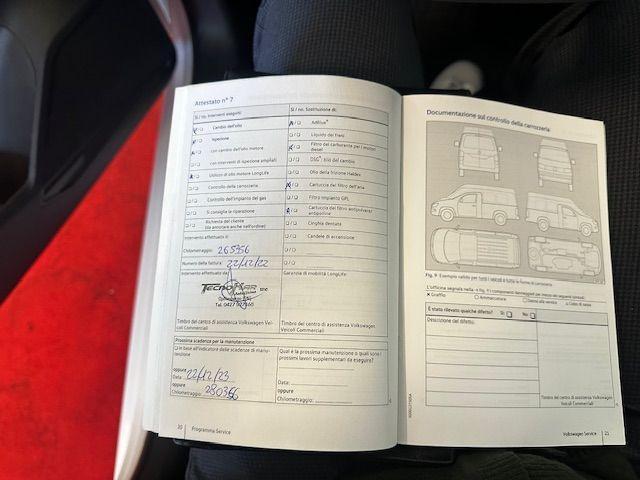 Attestato n° 7
Sì / no, Interventi eseguiti
Cambio dell'olio
Ispezione
con cambio dell'olio motore
con interventi di ispezione ampliati
Utilizzo di olio motore LongLife
Controllo della carrozzeria
Controllo dell'impianto del gas
Si consiglia la riparazione
Richiesta del cliente
(da annotare anche nell'ordine)
Intervento effettuato il:
Chilometraggio: 265956
Numero della fattura: 22/12/22
Intervento effettuato da:
TECNO CAR snc
Timbro del centro di assistenza Volkswagen Vei-
coli Commerciali
Sì / no, Sostituzione di:
AdBlue®
Liquido dei freni
Filtro del carburante per i motori
diesel
DSG®: olio del cambio
Olio della frizione Haldex
Cartuccia del filtro dell'aria
Filtro impianto GPL
Cartuccia del filtro antipolvere/
antipolline
Cinghia dentata
Candele di accensione
Garanzia di mobilità LongLife:
Timbro del centro di assistenza Volkswagen
Veicoli Commerciali
Prossima scadenza per la manutenzione
in base all'indicatore delle scadenze di manu-
tenzione
oppure
Data: 22/12/23
oppure
Chilometraggio: 280366
Qual è la prossima manutenzione o quali sono i
prossimi lavori supplementari da eseguire?
Data:
oppure
Chilometraggio:
20 Programma Service
Documentazione sul controllo della carrozzeria
Fig. 9 Esempio valido per tutti i veicoli e tutte le forme di carrozzeria
L'officina segnala nella
× Graffio
○ Ammaccature
È stato rilevato qualche difetto? Sì No
Descrizione del difetto:
Timbro del centro di assistenza Volkswagen
Veicoli Commerciali
Volkswagen Service 21